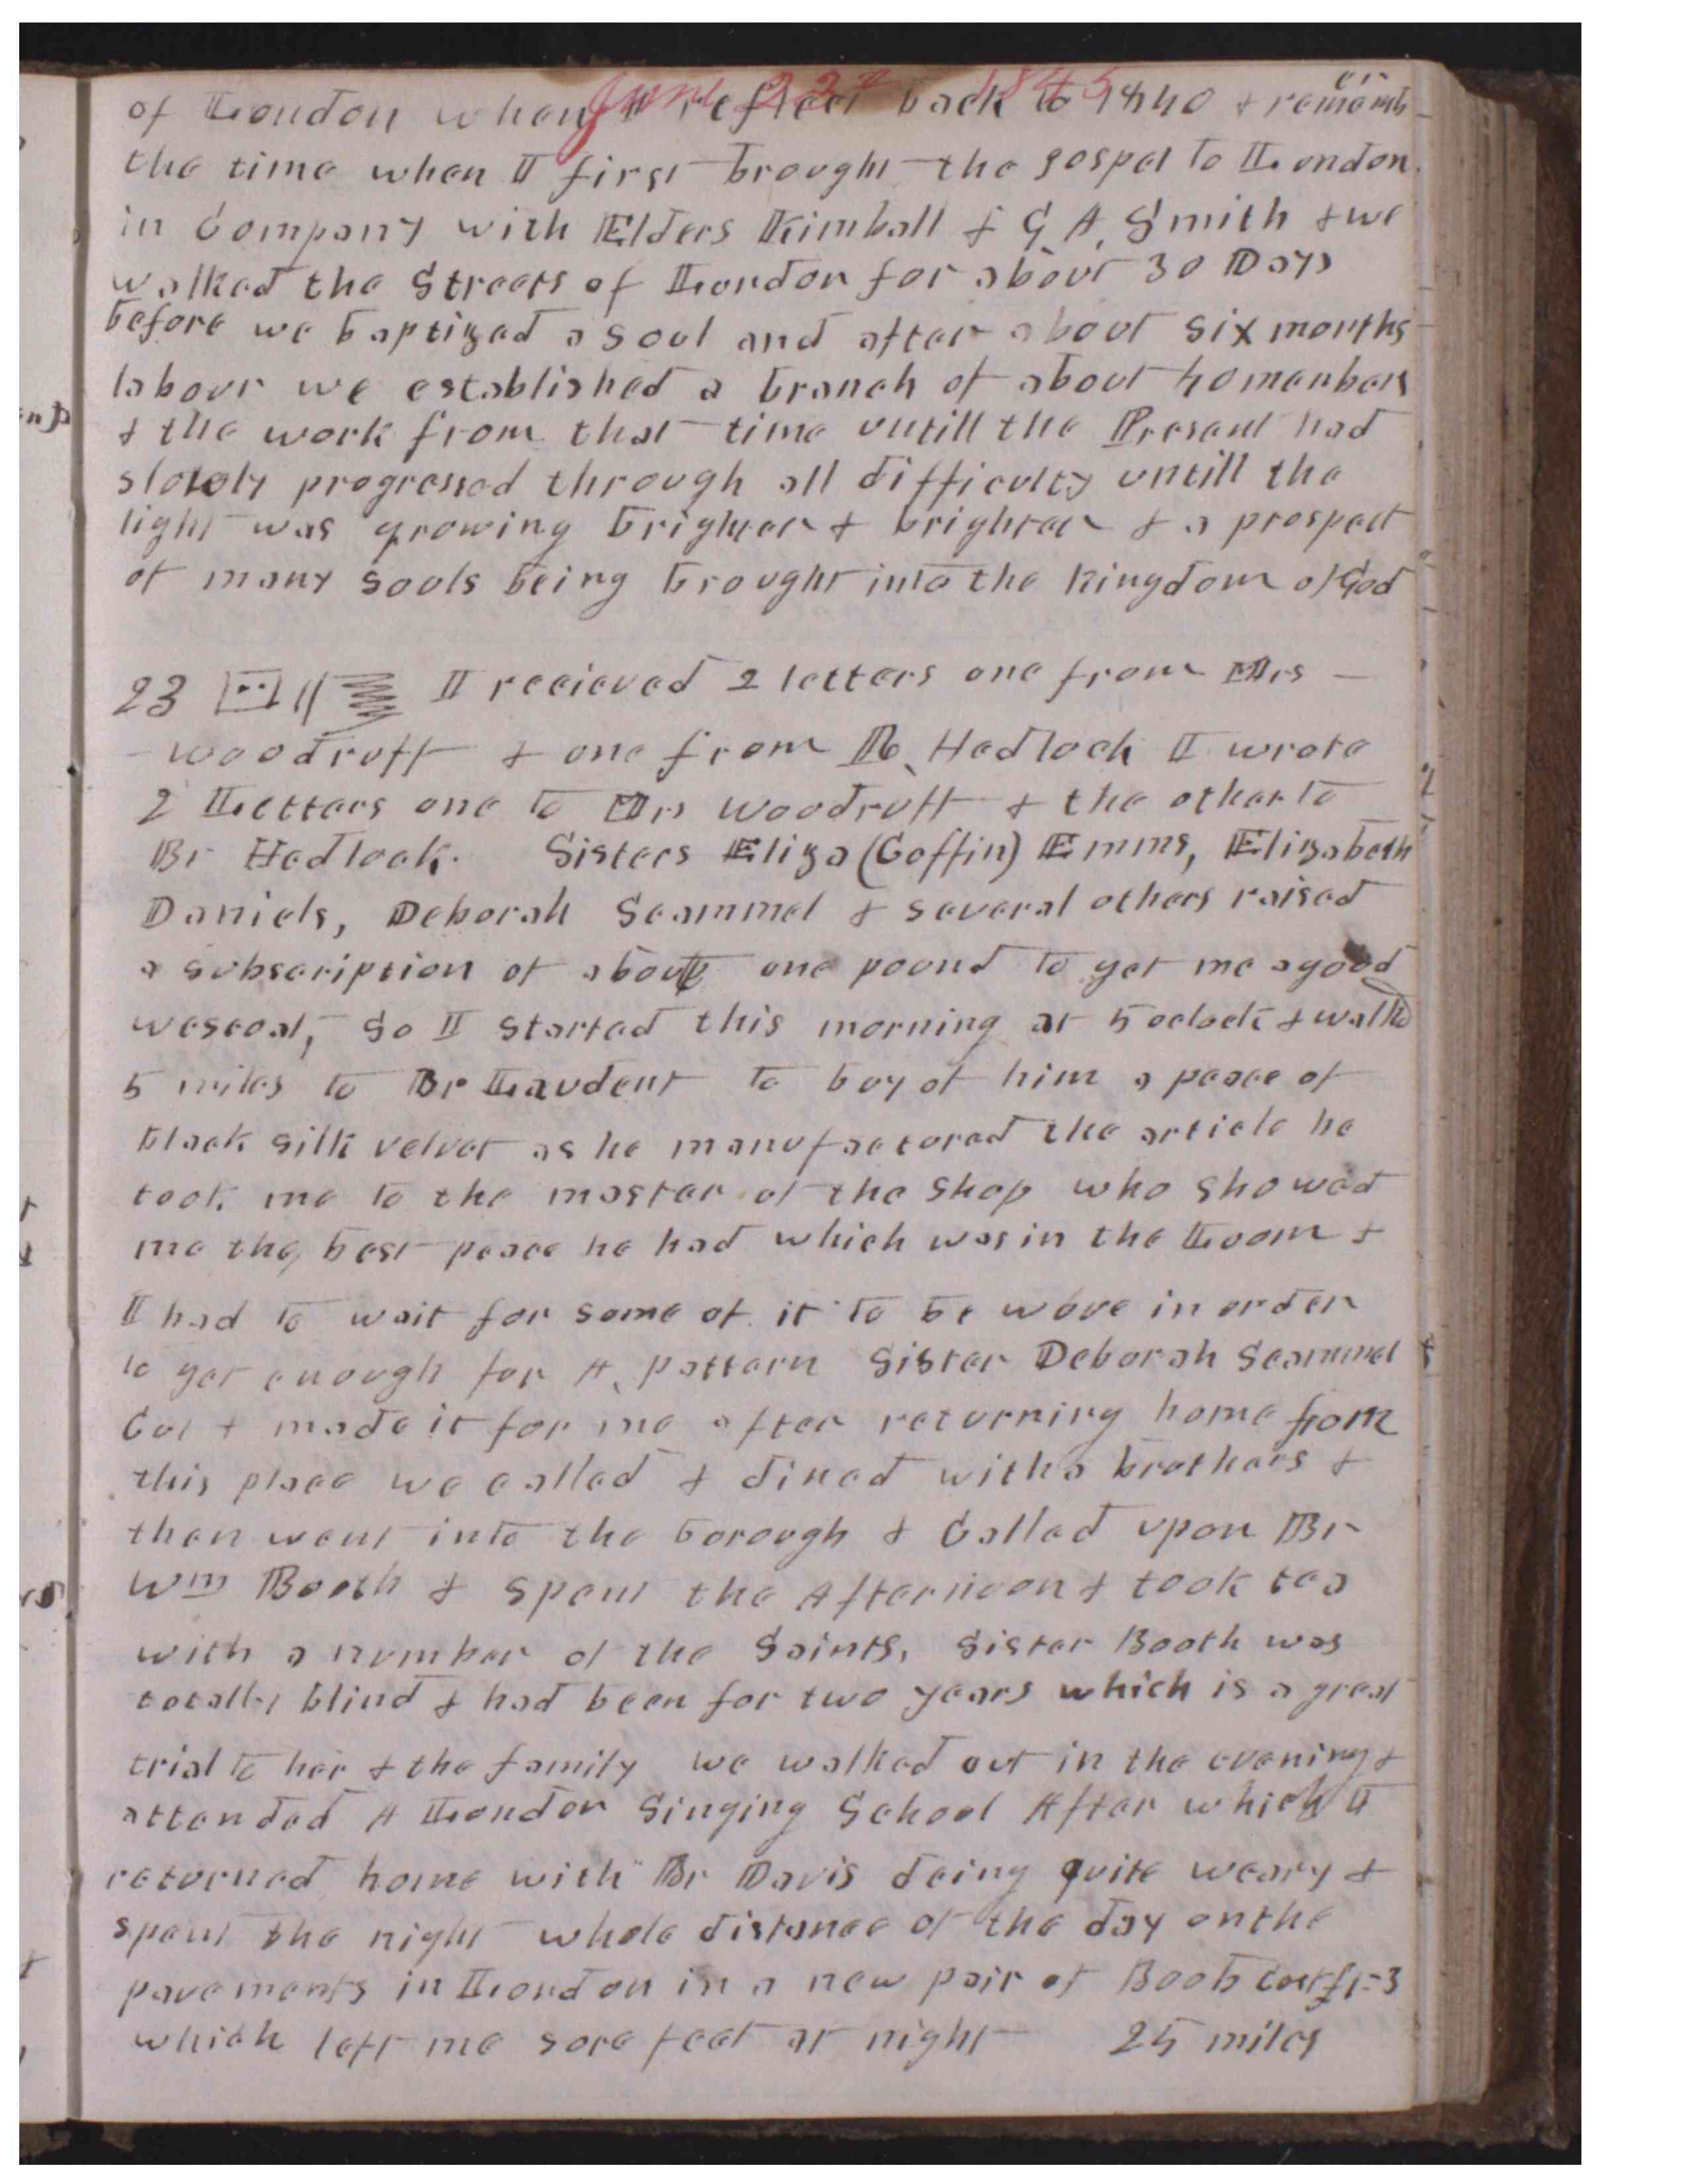 June 22d 1845
of London when I reflect back to 1840 & rememb er
the time when I first brought the gospel to London
in Company with Elders Kimball & G, A, Smith & we
walked the Streets of London for about 30 Days
before we baptized a soul and after about six months
labour we established a branch of about 40 menbers
& the work from that time untill the Present had
slowly progressed through all difficulty untill the
light was growing brighter & brighter & a prospect
of many souls being brought into the kingdom of God
23 I recieved 2 letters one from Mrs –
– woodruff & one from R, Hedlock I wrote
2 Letters one to Mrs woodruff & the other to
Br Hedlock. Sisters Eliza (Coffin) Emms, Elizabeth
Daniels, Deborah Scammel & several others raised
a subscription of about one pound to get me a good
wescoat, So I started this morning at 5 oclock & walkd
5 miles to Br Laudent to buy of him a peace of
black silk velvet as he manufactored the article he
took me to the master of the shop who showed
me the best peace he had which was in the Loom &
I had to wait for some of it to be wove in order
to get enough for A, pattern Sister Deborah Scammel
Cut & made it for me after returning home from
this place we called & dined with a brothers &
then went into the borough & Called upon Br
Wm Booth & spent the Afternoon & took tea
with a number of the Saints, Sister Booth was
totally blind & had been for two years which is a great
trial to her & the family we walked out in the evening &
attended A London Singing School After which I
returned home with Br Davis being quite weary &
spent the night whole distance of the day on the
pavements in London in a new pair of Boots cost £1=3
which left me sore feet at night 25 miles